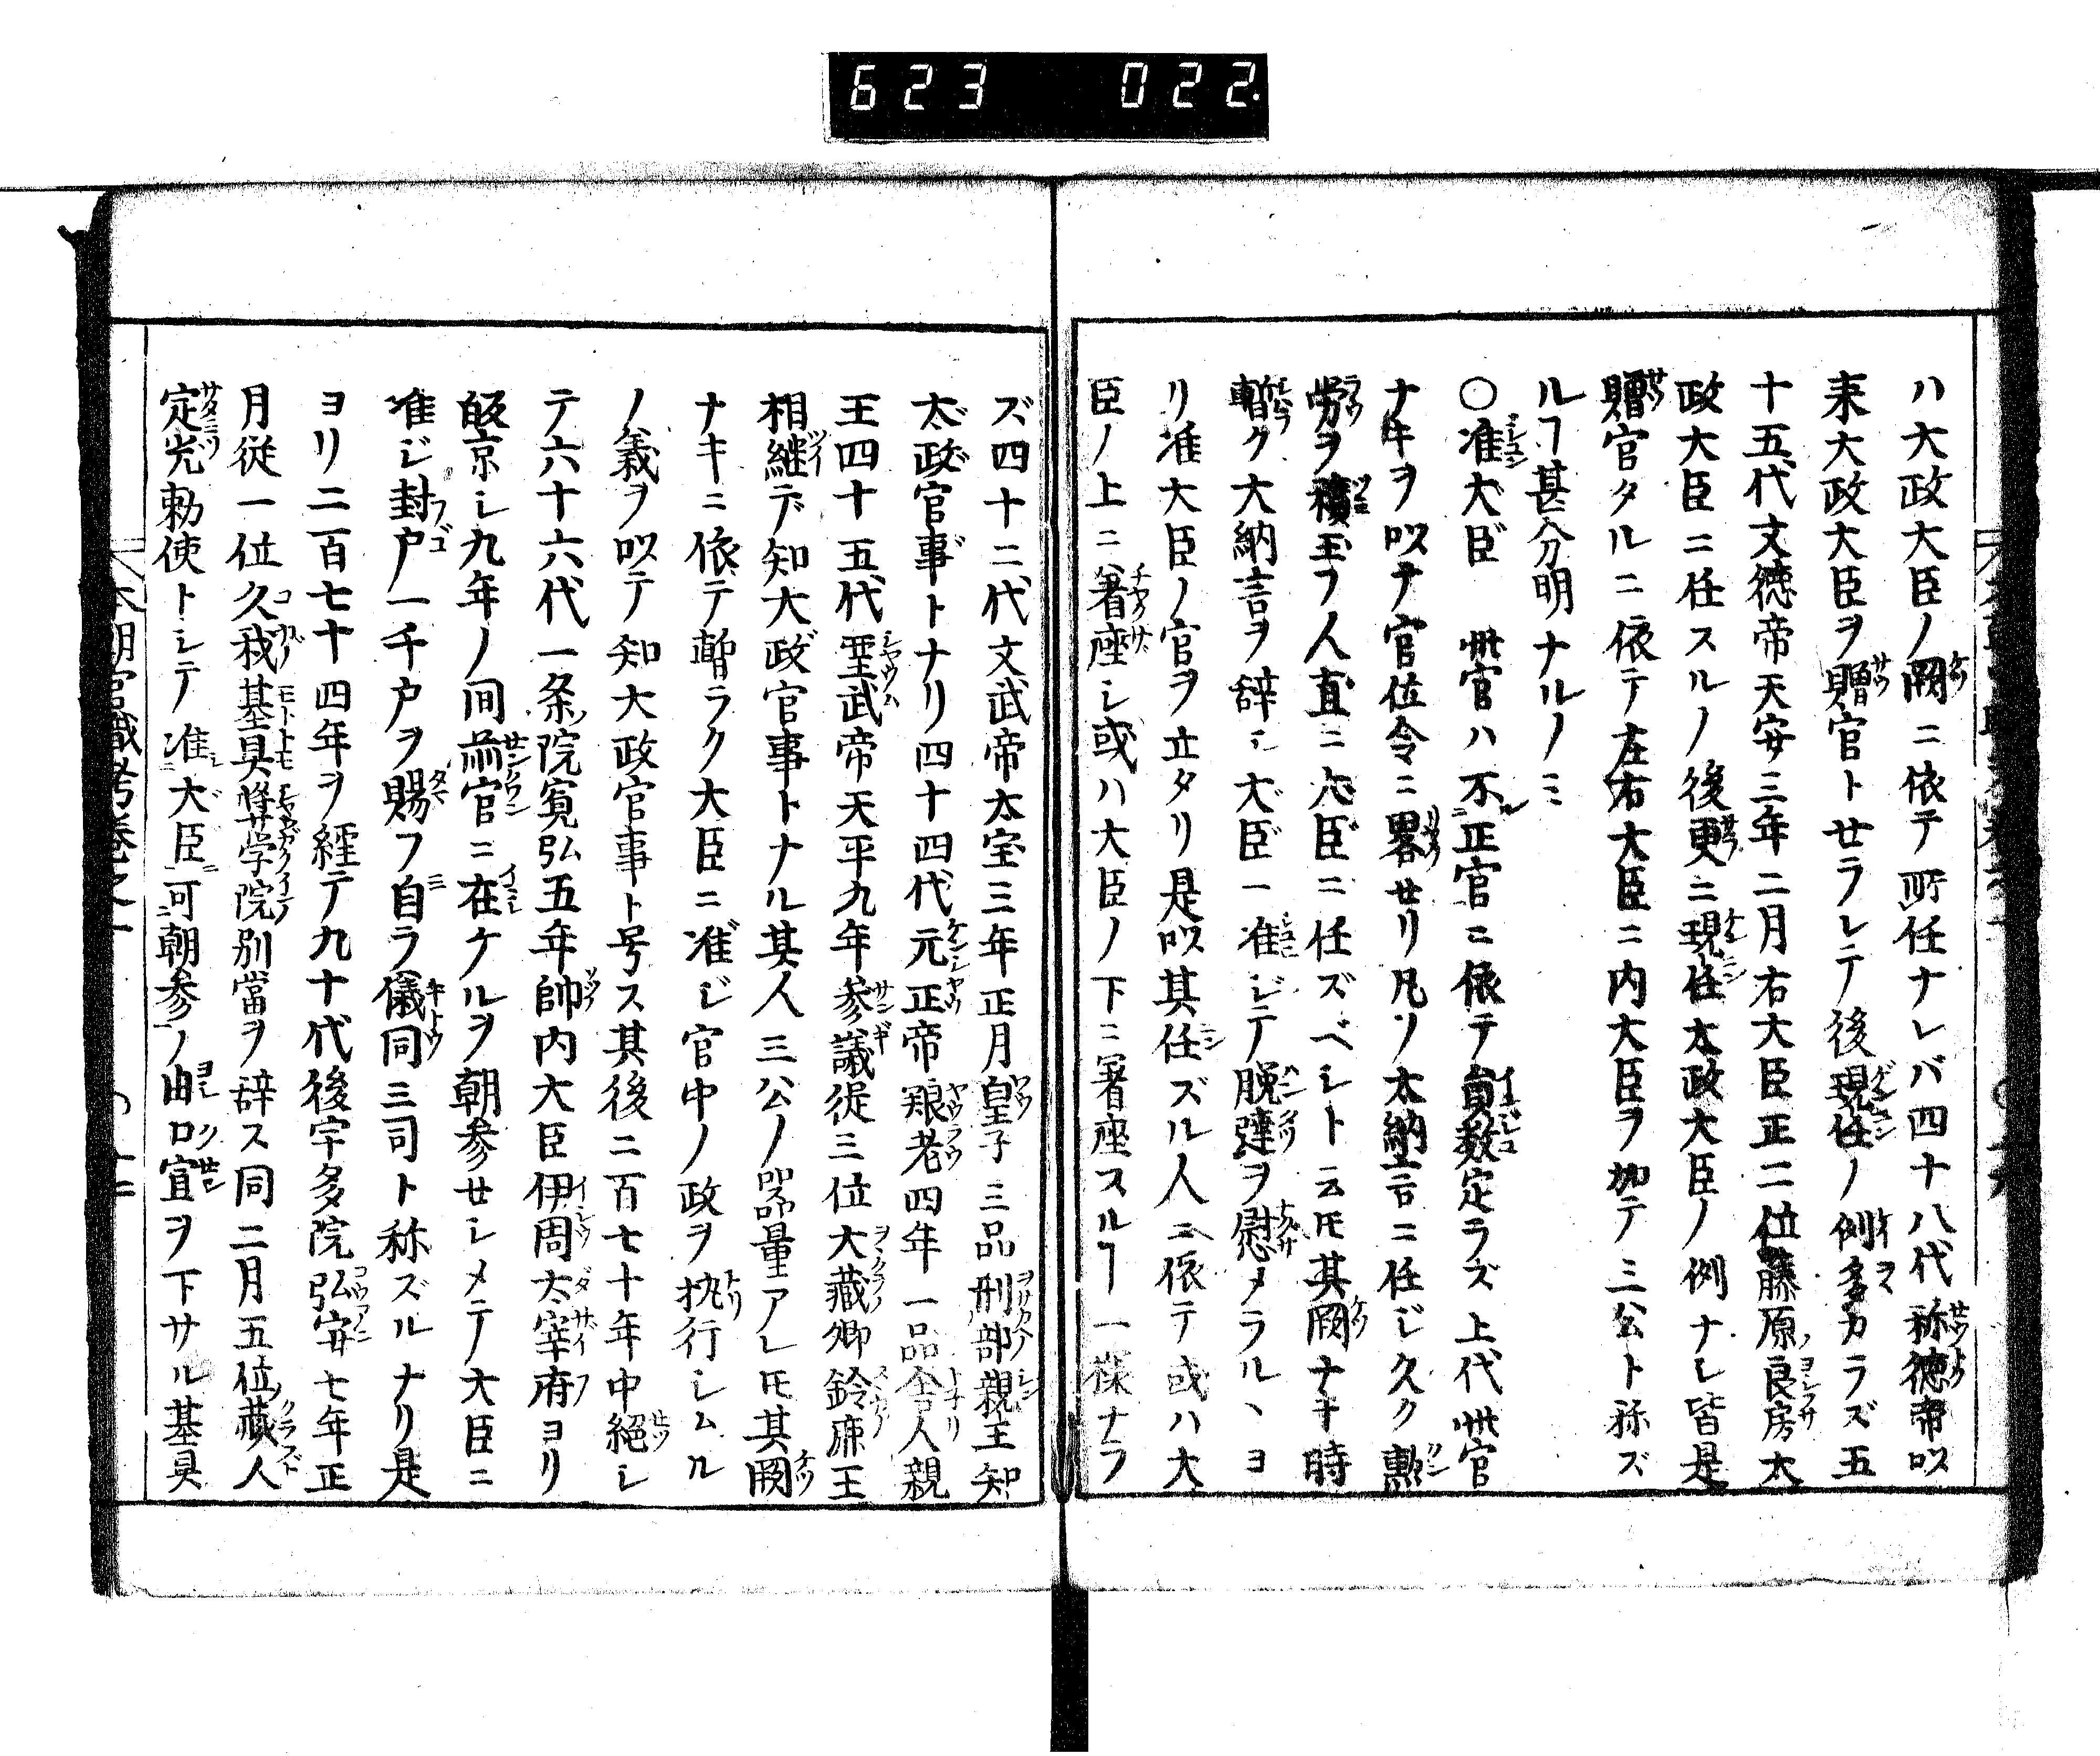 623 022.
ハ大政大臣ノ闕ニ依テ所任ナレバ四十八代称徳帝以
来大政大臣ヲ贈官トせラレテ後現任ノ例多カラズ五
十五代文徳帝天安三年二月右大臣正二位藤原良房太
政大臣ニ任スルノ後更ニ現任太政大臣ノ例ナし皆是
贈官タルニ依テ左右大臣ニ内大臣ヲ加テ三公ト称ズ
ルヿ甚分明ナルノミ
○准大臣 此官ハ不正官ニ依テ員数定ラズ上代此官
ナキヲ以ナ官位令ニ畧せリ凡ソ太納言ニ任じ久ク勲
労ヲ積玉フ人直ニ大臣ニ任ズベシト云𪜈其闕ナキ時
暫ク大納言ヲ辞シ大臣ニ准ジテ脱蹇ヲ慰メラルヽヨ
リ准大臣ノ官ヲ立タリ是以其任ズル人ニ依テ或ハ大
臣ノ上ニ著座シ或ハ大臣ノ下ニ著座スルヿ一様ナラ
ズ四十二代文武帝太宝三年正月皇子三品刑部親王知
太政官事トナリ四十四代元正帝養老四年一品舎人親
王四十五代聖武帝天平九年参議従三位大蔵卿鈴鹿王
相継デ知大政官事トナル其人三公ノ器量アレ𪜈其闕
ナキニ依テ暫ラク大臣ニ准ジ官中ノ政ヲ執行シムル
ノ義ヲ以テ知大政官事ト号ス其後二百七十年中絶シ
テ六十六代一条院寛弘五年帥内大臣伊周太宰府ヨリ
皈京シ九年ノ間前官ニ在ケルヲ朝参せシメテ大臣ニ
准ジ封戸一千戸ヲ賜フ自ラ儀同三司ト称ズルナリ是
ヨリ二百七十四年ヲ經テ九十代後宇多院弘安七年正
月従一位久我基具奨学院別當ヲ辞ス同二月五位蔵人
定光勅使トシテ准大臣可朝参ノ由口宣ヲ下サル基具
本朝官職考巻之一